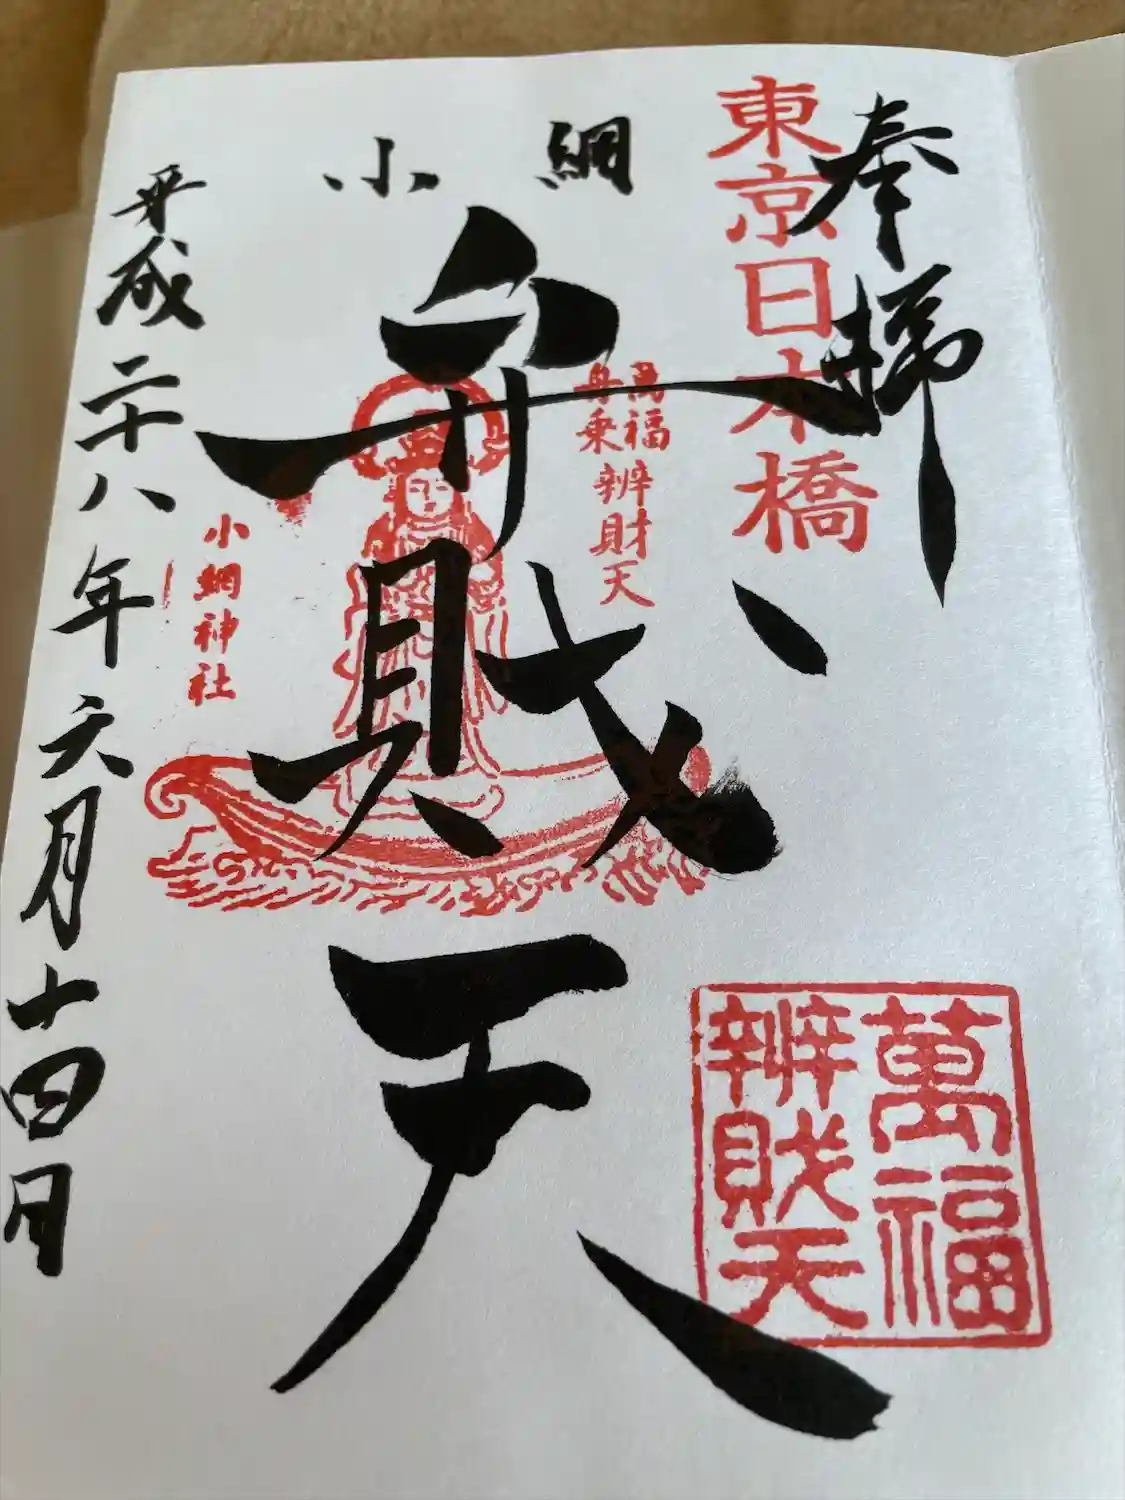 奉拝
東京日本橋
小網
弁財天
萬福
舟乗
辨財天
小網神社
萬福
辨財天
平成二十八年六月十四日